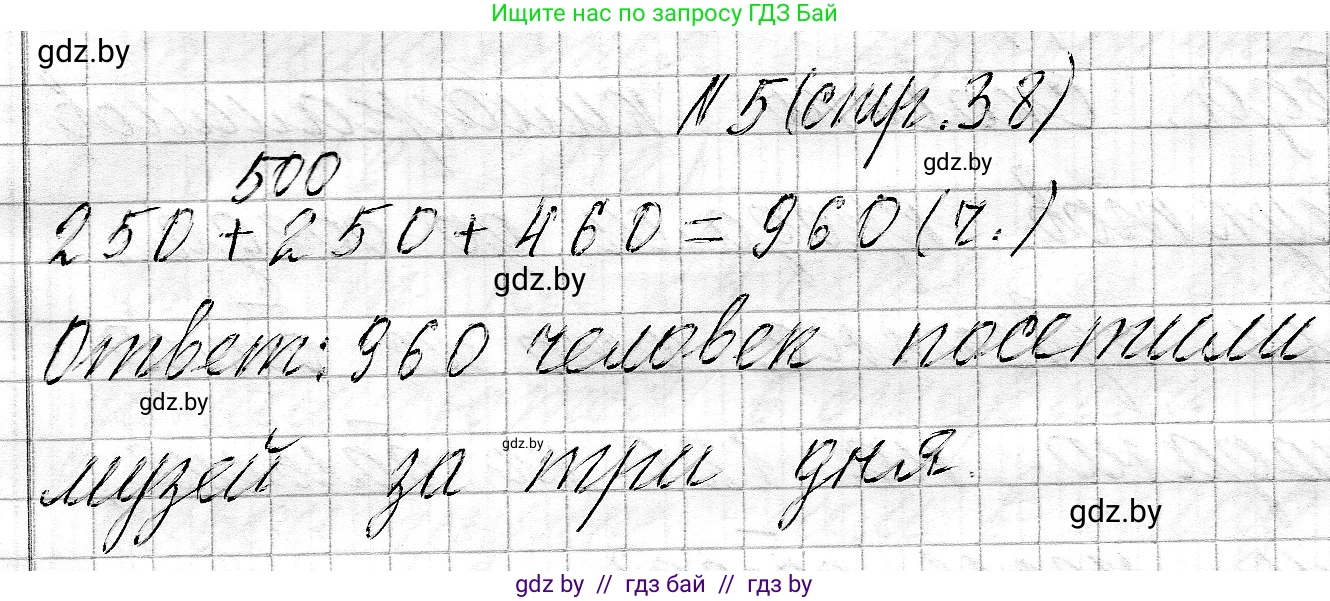 Ищите нас по запросу ГДЗ Бай
gdz.by
N 5 (стр. 38)
gdz.by
500
250 + 250 + 460 = 960 (ч.)
gdz.by
Ответ: 960 человек посетили
gdz.by
музей за три дня.
gdz.by
gdz.by
gdz.by // гдз бай // гдз by